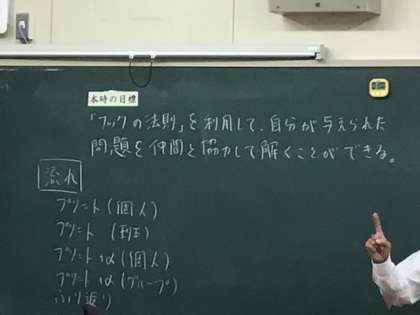 本時の目標
「フックの法則」を利用して、自分が与えられた
問題を仲間と協力して解くことができる。
流れ
プリント(個人)
プリント(班)
プリント+α(個人)
プリント+α(グループ)
ふり返り